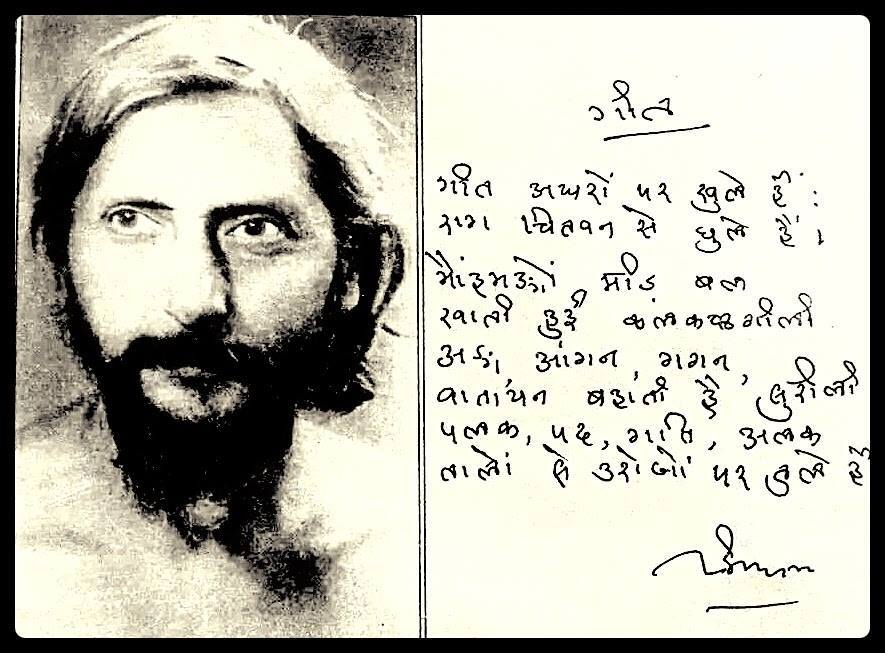 गीत
गीत अधरों पर खुले हैं:
राग चितवन से घुले हैं।
मींड बल
खाती हुई
अङ्ग, आंगन, गगन,
वातायन बहाती है सुरीली
पलक, पद, गति, अलक
तालों से उरोजों पर तुले हैं